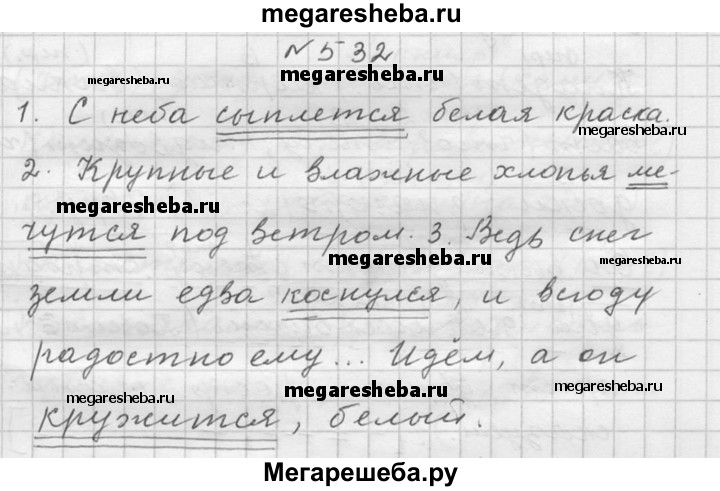 megaresheba.ru
№532
megaresheba.ru megaresheba.ru
1. С неба сыплется белая краска.
megaresheba.ru
2. Крупные и влажные хлопья ме-
megaresheba.ru
чутся под ветром. 3. Ведь снег
megaresheba.ru megaresheba.ru
земли едва коснулся, и всюду
радостно ему... Идём, а он
megaresheba.ru megaresheba.ru
кружится, белый.
Мегарешеба.ру